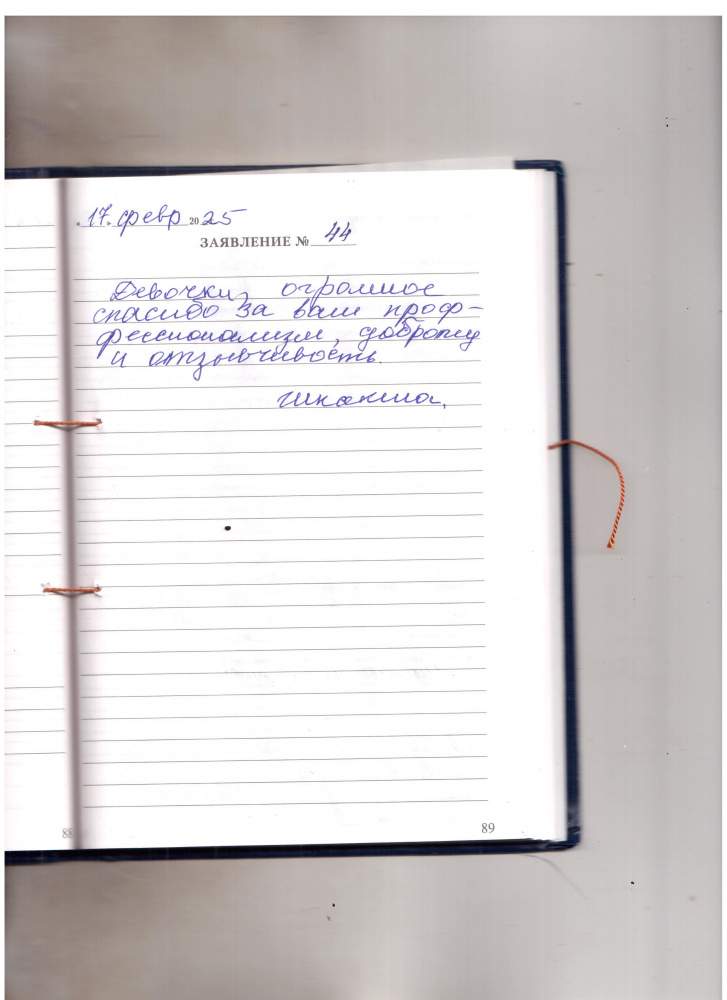 „17„ февр 2025
ЗАЯВЛЕНИЕ № 44
Девочки, огромное
спасибо за ваш проф-
фессионализм, доброту
и отзывчивость.
88
89